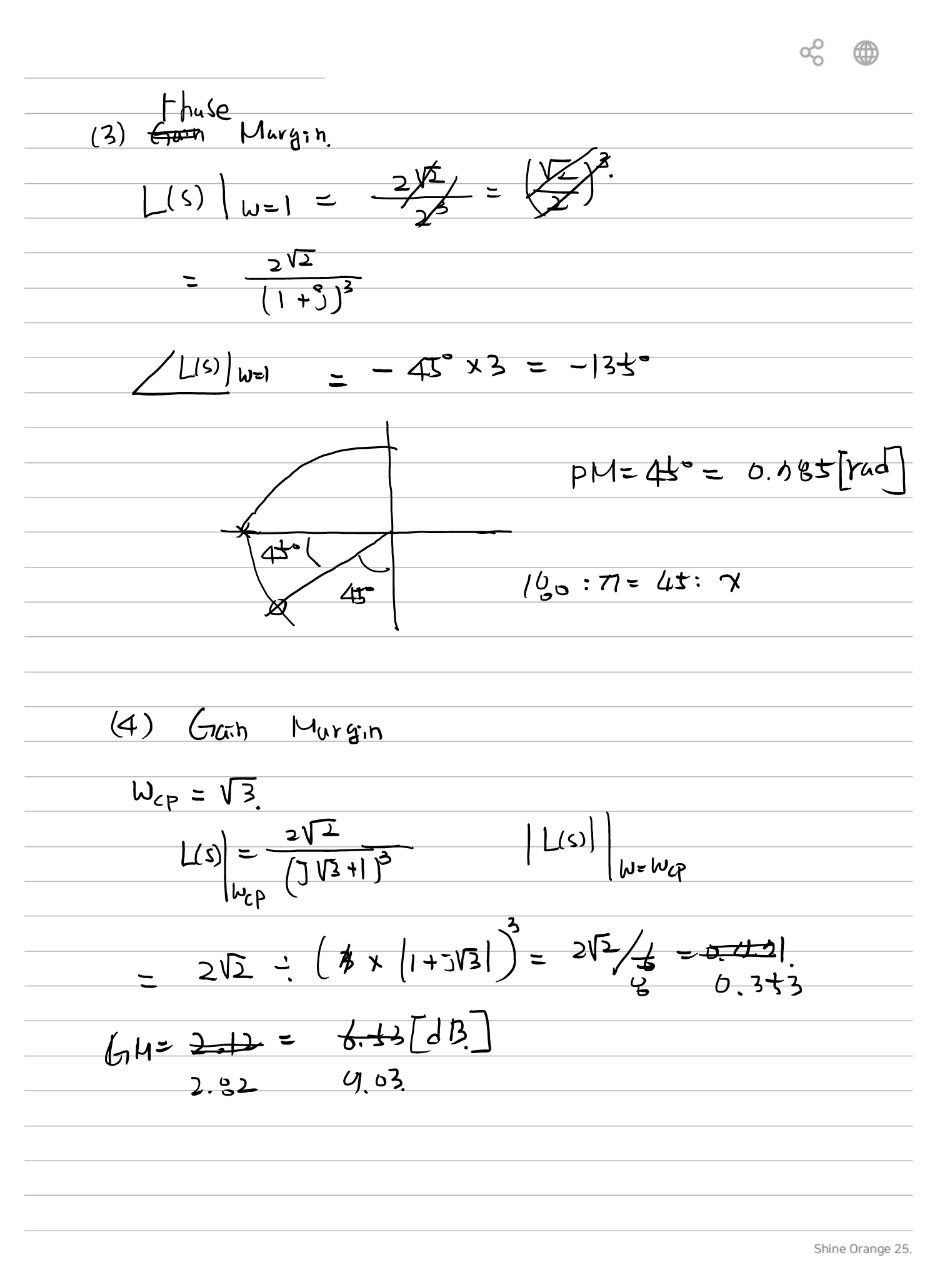 (3) Gain Phase Margin.
L(s)|w=1 = 2√2/2³ = (√2/2)³.
= 2√2/(1+j)³
∠L(s)|w=1 = -45° × 3 = -135°
PM = 45° = 0.785 [rad]
45°
45°
180 : π = 45 : x
(4) Gain Margin
Wcp = √3.
L(s)|Wcp = 2√2/(j√3+1)³ |L(s)||w=wcp
= 2√2 ÷ ( × |1+j√3|)³ = 2√2/8 = 0.353
GM = 2.12 = 6.53 [dB.]
2.82 9.03.
Shine Orange 25.